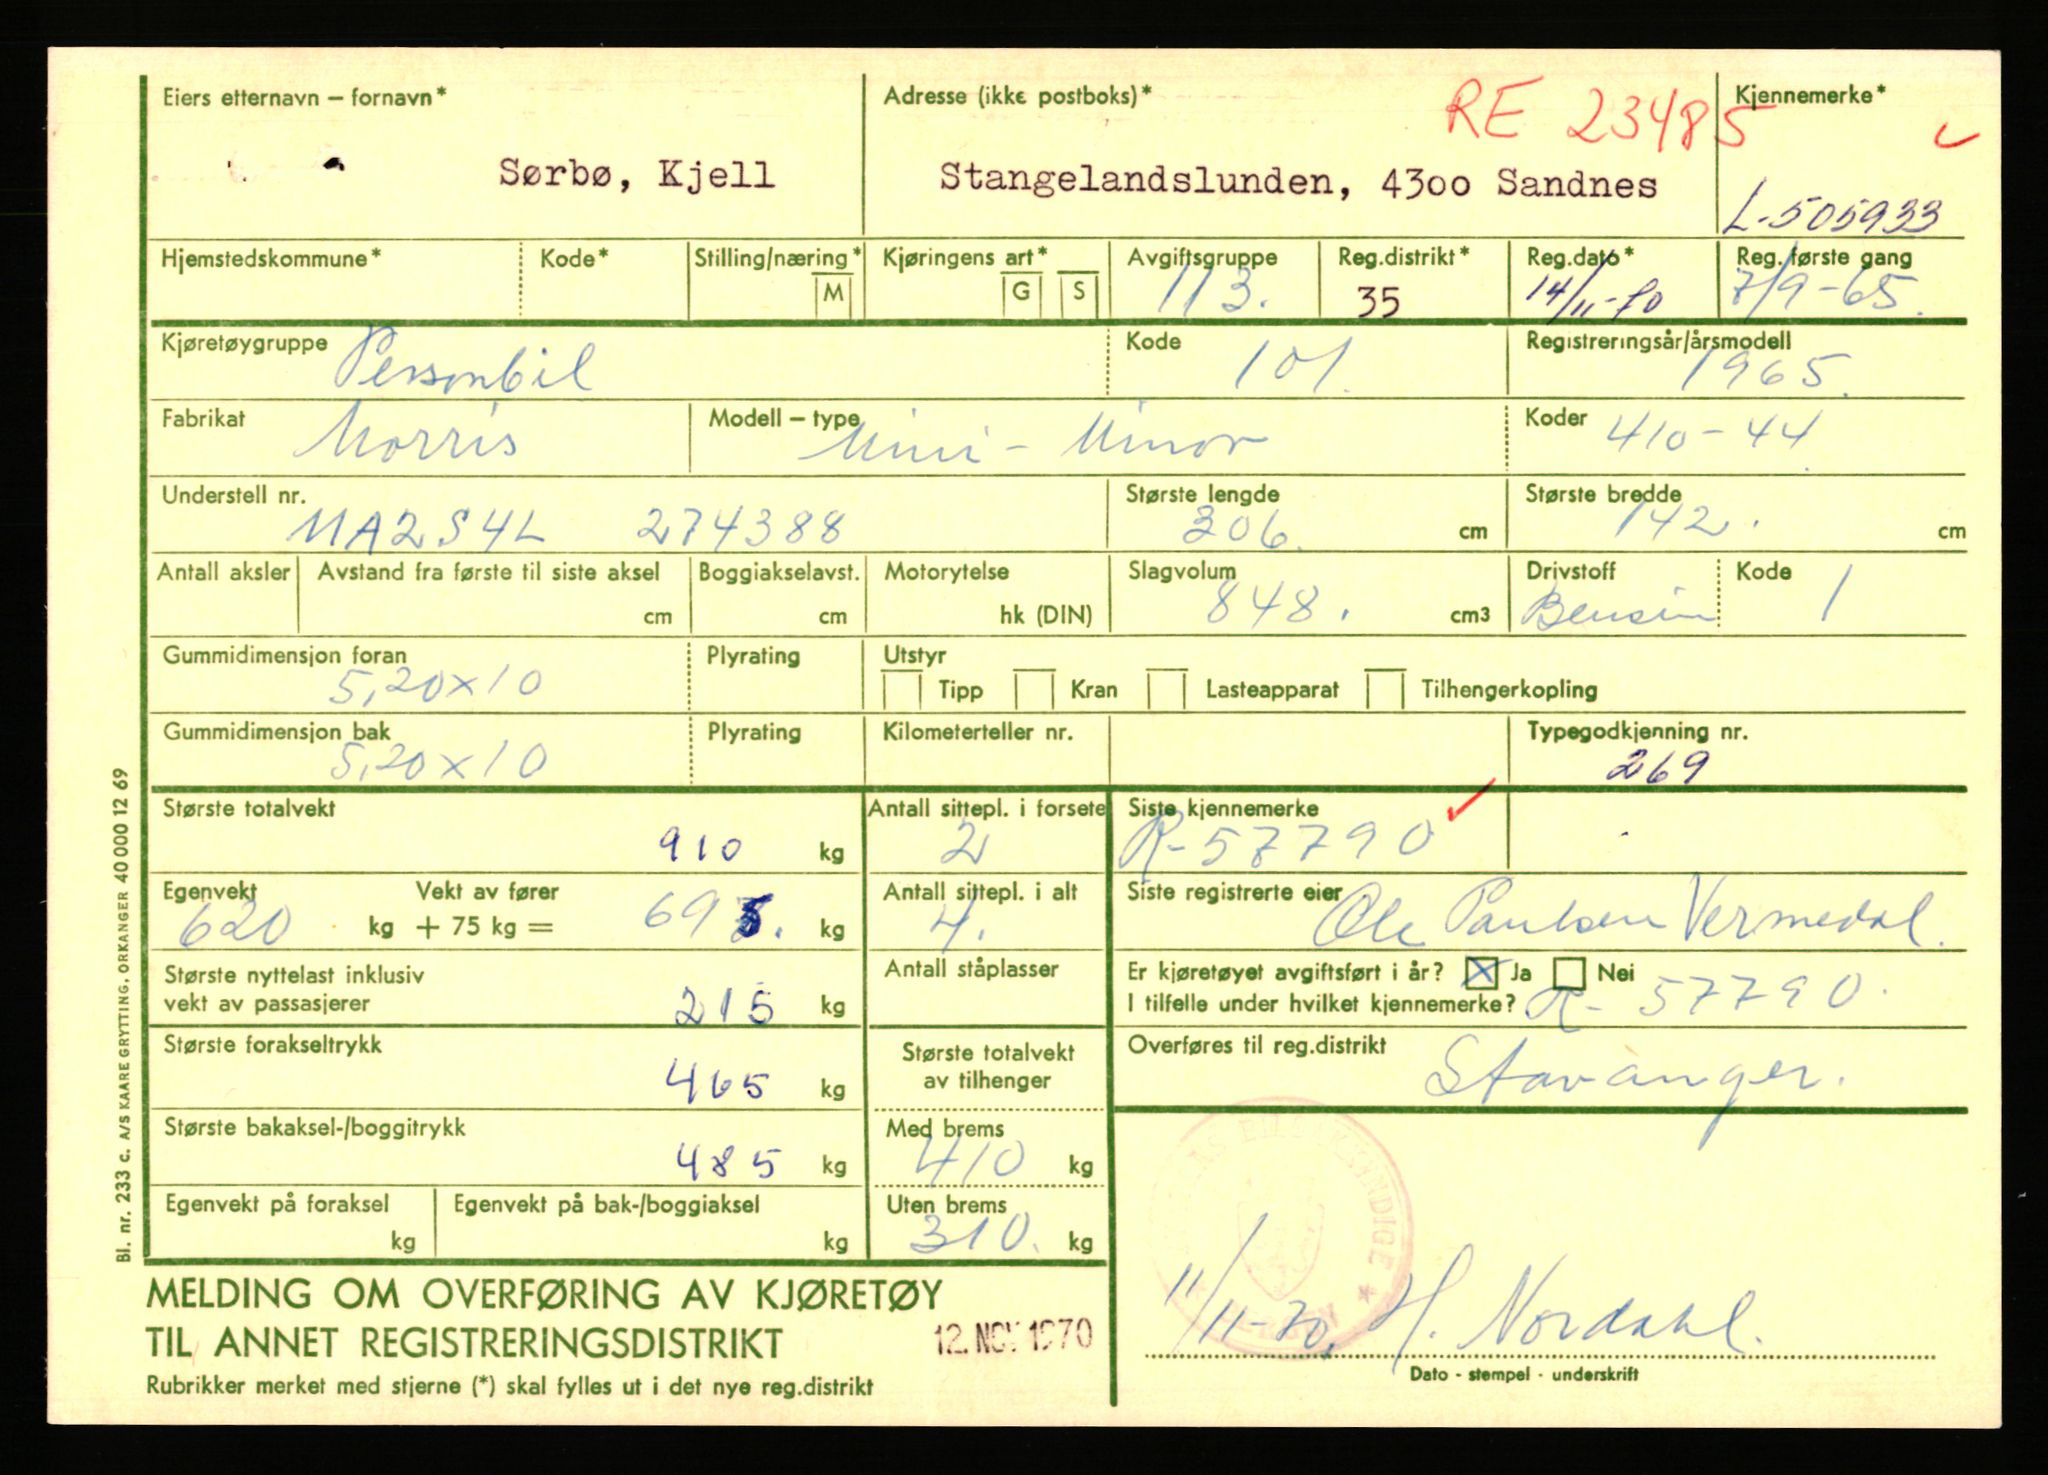 Eiers etternavn – fornavn*
Sørbø, Kjell
Adresse (ikke postboks)*
RE 23485
Stangelandslunden, 4300 Sandnes
Kjennemerke*
L-505933
Hjemstedskommune*
Kode*
Stilling/næring*
M
Kjøringens art*
G S
Avgiftsgruppe
113.
Reg.distrikt*
35
Reg.dato*
14/11-70
Reg. første gang
7/9-65.
Kjøretøygruppe
Personbil
Kode
101.
Registreringsår/årsmodell
1965.
Fabrikat
Morris
Modell – type
Mini - Minor
Koder
410-44
Understell nr.
MA2S4L 274388
Største lengde
306. cm
Største bredde
142. cm
Antall aksler
Avstand fra første til siste aksel
cm
Boggiakselavst.
cm
Motorytelse
hk (DIN)
Slagvolum
848. cm3
Drivstoff
Bensin
Kode
1
Gummidimensjon foran
5,20x10
Plyrating
Utstyr
Tipp Kran Lasteapparat Tilhengerkopling
Gummidimensjon bak
5,20x10
Plyrating
Kilometerteller nr.
Typegodkjenning nr.
269
Største totalvekt
910 kg
Antall sittepl. i forsete
2
Siste kjennemerke
R-57790
Egenvekt Vekt av fører
620 kg + 75 kg = 695. kg
Antall sittepl. i alt
4.
Siste registrerte eier
Ole Paulsen Vermedal.
Største nyttelast inklusiv
vekt av passasjerer
215 kg
Antall ståplasser
Er kjøretøyet avgiftsført i år? X Ja Nei
I tilfelle under hvilket kjennemerke? R-57790.
Største forakseltrykk
465 kg
Største totalvekt
av tilhenger
Overføres til reg.distrikt
Stavanger.
Største bakaksel-/boggitrykk
485 kg
Med brems
410 kg
Egenvekt på foraksel
kg
Egenvekt på bak-/boggiaksel
kg
Uten brems
310. kg
MELDING OM OVERFØRING AV KJØRETØY
TIL ANNET REGISTRERINGSDISTRIKT
12. NOV 1970
Rubrikker merket med stjerne (*) skal fylles ut i det nye reg.distrikt
11/11-70. H. Nordahl.
Dato - stempel - underskrift
Bl. nr. 233 c. A/S KAARE GRYTTING, ORKANGER 40 000 12 69